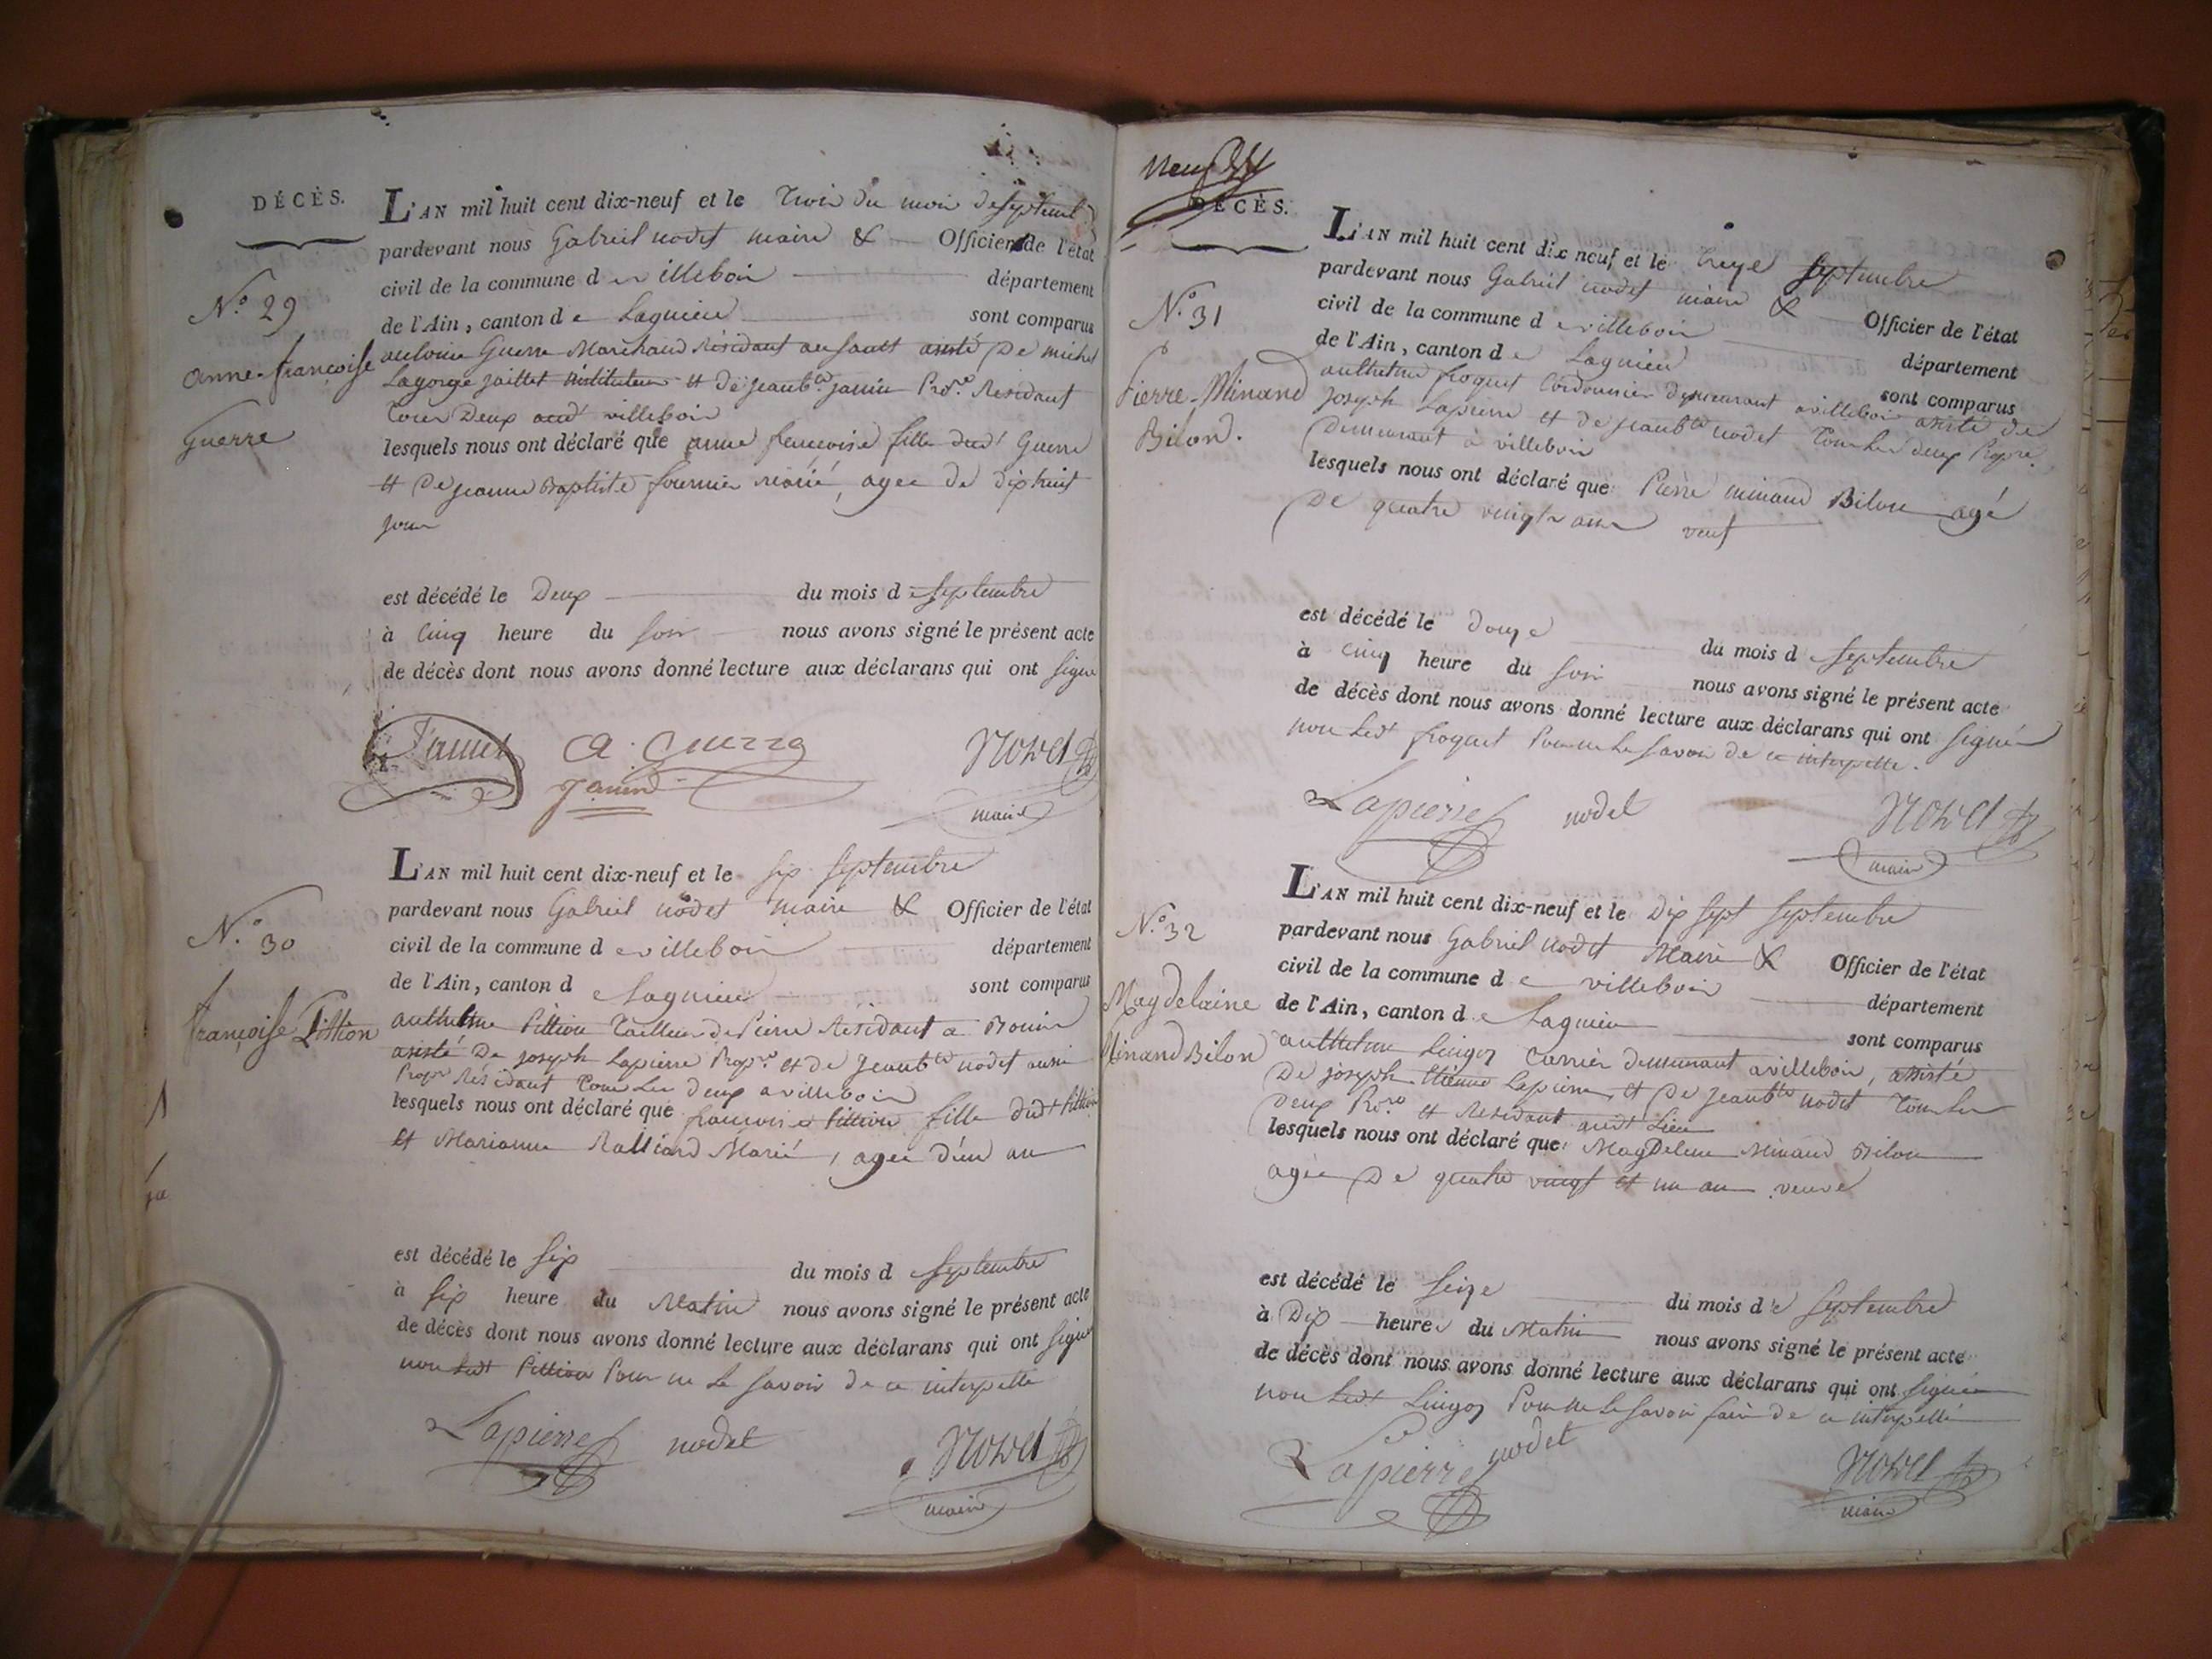 DÉCÈS.
L'AN mil huit cent dix-neuf et le Trois du mois de septemb
pardevant nous Gabriel nodet maire & Officier de l'état
civil de la commune d e villebois département
de l'Ain, canton d e Lagnieu sont comparus
N.º 29
anne-françoise
Guerre
antoine Guerre Marchand Résidant au sault assisté De michel
Lagorge jaillet instituteur et de jean b.te janin Pro.re Residant
Tous Deux aud.t villebois
lesquels nous ont déclaré que anne francoise fille dud.t Guerre
et De jeanne Baptiste fournier marié, agée de dix huit
jour
est décédé le Deux du mois d e septembre
à cinq heure du soir nous avons signé le présent acte
de décès dont nous avons donné lecture aux déclarans qui ont signé
A. Guerre
Janin
Nodet
maire
L'AN mil huit cent dix-neuf et le six septembre
pardevant nous Gabriel nodet maire & Officier de l'état
civil de la commune d e villebois département
de l'Ain, canton d e Lagnieu sont comparus
N.º 30
françoise Pittion
anthelme Pittion Tailleur de Pierre Résidant a Bouis
assisté De joseph Lapierre Prop.re et de Jean b.te nodet aussi
Prop.re Résidant Tous Les deux a villebois
lesquels nous ont déclaré que francoise Pittion fille dud.t Pittion
et Marianne Ralliard Marié, agée d'un an
est décédé le six du mois d e septembre
à six heure du Matin nous avons signé le présent acte
de décès dont nous avons donné lecture aux déclarans qui ont signé
non Led.t Pittion Pour ne Le savoir de ce interpellé
Lapierre nodet Nodet
maire
DÉCÈS.
L'AN mil huit cent dix neuf et le treize septembre
pardevant nous Gabriel nodet maire & Officier de l'état
civil de la commune d e villebois département
de l'Ain, canton d e Lagnieu sont comparus
N.º 31
Pierre-Minand
Bilon.
anthelme froquet Cordonnier demeurant a villebois assisté de
joseph Lapierre et de jean b.te nodet Tous Les deux Prop.re
Demeurant à villebois
lesquels nous ont déclaré que Pierre minand Bilon agé
De quatre vingts ans veuf
est décédé le douze du mois d e septembre
à cinq heure du soir nous avons signé le présent acte
de décès dont nous avons donné lecture aux déclarans qui ont signé
non Led.t froquet Pour ne Le savoir de ce interpellé.
Lapierre nodet Nodet
maire
L'AN mil huit cent dix-neuf et le Dix sept septembre
pardevant nous Gabriel nodet Maire & Officier de l'état
civil de la commune d e villebois département
de l'Ain, canton d e Lagnieu sont comparus
N.º 32
Magdelaine
Minand Bilon
anthelme Carrier demeurant a villebois, assisté
De joseph Etienne Lapierre, et De jean b.te nodet Tous Les
deux Pro.re et Residant aud.t Lieu
lesquels nous ont déclaré que Magdelene Minand Bilon
agée De quatre vingt et un an veuve
est décédé le seize du mois d e septembre
à Dix heures du Matin nous avons signé le présent acte
de décès dont nous avons donné lecture aux déclarans qui ont signé
non Led.t Pour ne Le savoir faire de ce interpellé
Lapierre nodet Nodet
maire